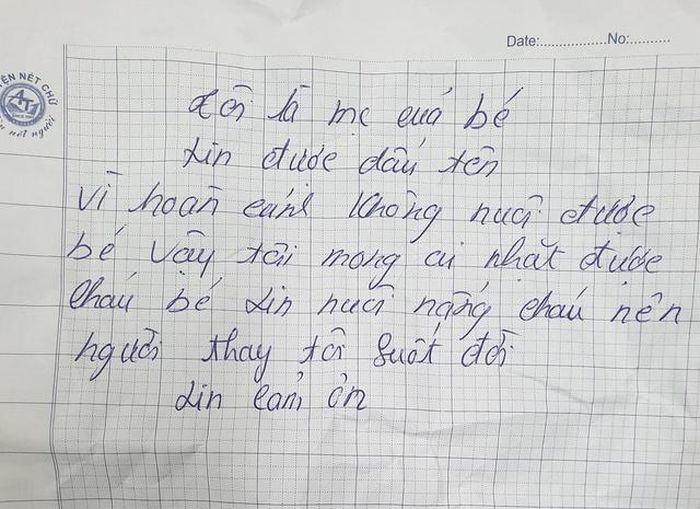 Date:.................No:..........
YỆN NÉT CHỮ
ÈN nết người
Tôi là mẹ cuả bé
xin được dấu tên
Vì hoàn cảnh không nuôi được
bé vậy tôi mong ai nhặt được
cháu bé xin nuôi nấng cháu nên
người thay tôi suốt đời
xin cảm ơn